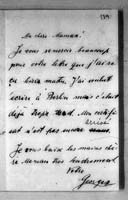 Ma chère Maman!
Je vous remercie beaucoup
pour votre lettre que j'ai re
çu hier matin. J'ai voulut
écrire à Berlin mais c'était
déjà trop tard. Mon certifi
arrivé
cat n'est pas encore
Je vous baise les mains chère
Maman très tendrement
Votre
Georges